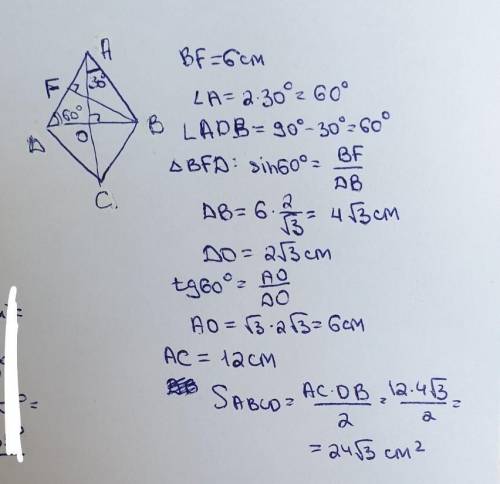 A
F
30°
60°
D
O
B
C.
BF=6см
∠A=2·30°=60°
∠ADB=90°-30°=60°
△BFD: sin60°= BF/DB
DB=6·2/√3= 4√3см
DO=2√3см
tg60°= AO/DO
AO=√3·2√3=6см
AC=12см
SABCD= AC·DB/2=12·4√3/2=
=24√3 см²